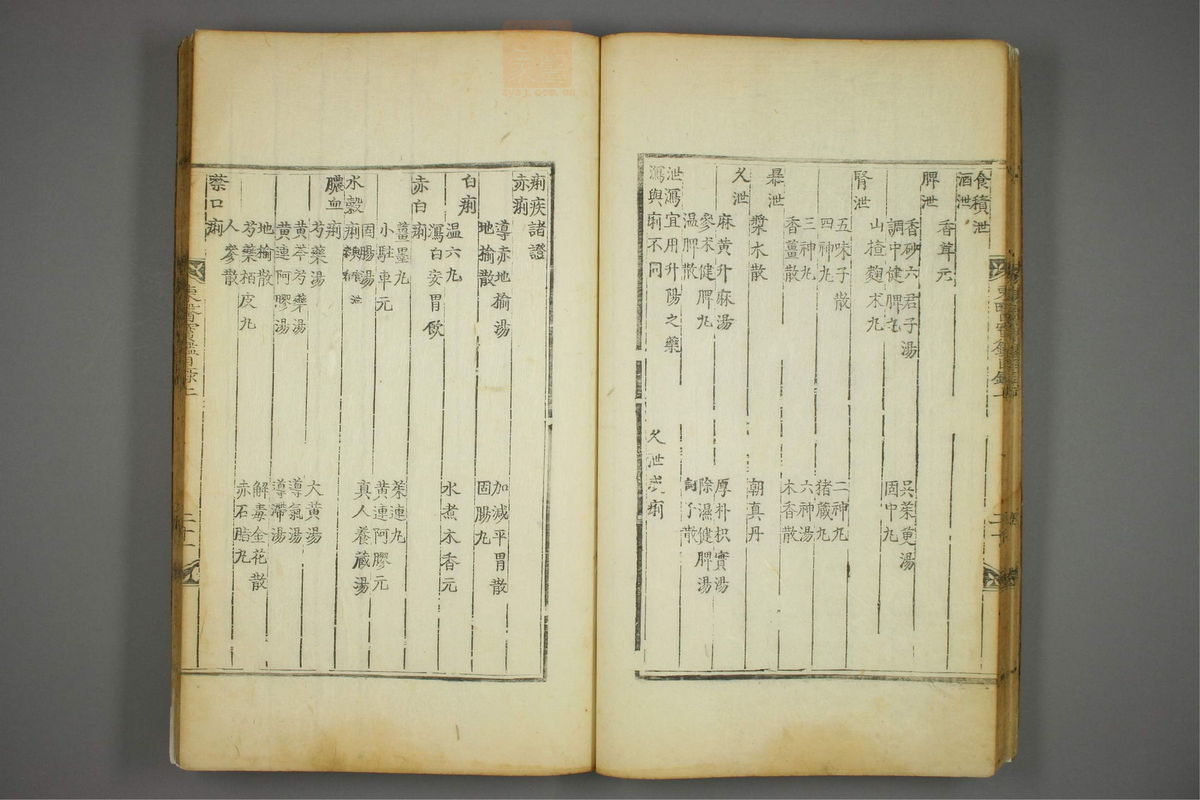 食積泄
酒泄
香茸元
脾泄
香砂六君子湯
調中健脾丸
山楂麴朮丸
吳茱萸湯
固中丸
腎泄
五味子散
四神丸
三神丸
香薑散
二神丸
猪蔵丸
六神湯
木香散
暴泄
漿水散
朝真丹
久泄
麻黃升麻湯
參朮健脾丸
温脾散
厚朴枳實湯
除濕健脾湯
訶子散
泄瀉宜用升陽之藥
瀉與痢不同
久泄成痢
痢疾諸證
赤痢
導赤地榆湯
地榆散
加減平胃散
固腸丸
白痢
温六丸
瀉白安胃飲
水煮木香元
赤白痢
薑墨丸
小駐車元
固腸湯
茱連丸
黃連阿膠元
真人養蔵湯
水穀痢
膿血痢
芍藥湯
黃芩芍藥湯
黃連阿膠湯
地榆散
芍藥栢皮丸
人參散
大黃湯
導氣湯
導滯湯
解毒金花散
赤石脂丸
禁口痢
東醫寶鑑目錄
二十一